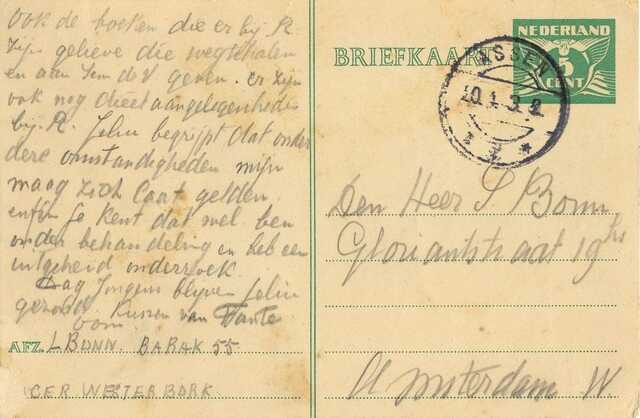 Ook de boeken die er bij R.
zijn gelieve die wegtehalen
en aan Jem de V geven. Er zijn
ook nog dieetaangelegenheden
bij R. Jelui begrijpt dat onder
dere omstandigheden mijn
maag zich laat gelden
enfin je kent dat wel ben
onder behandeling en heb een
uitgebreid onderzoek.
Dag Jongens blijven Jelui
gezond. Kussen van Tante
oom.
AFZ. L BONN. BARAK 55
CER WESTERBORK
BRIEFKAART
NEDERLAND
5
CENT
ASSEN
Den Heer S Bonn
Gloriantstraat 19 hs
Amsterdam W.